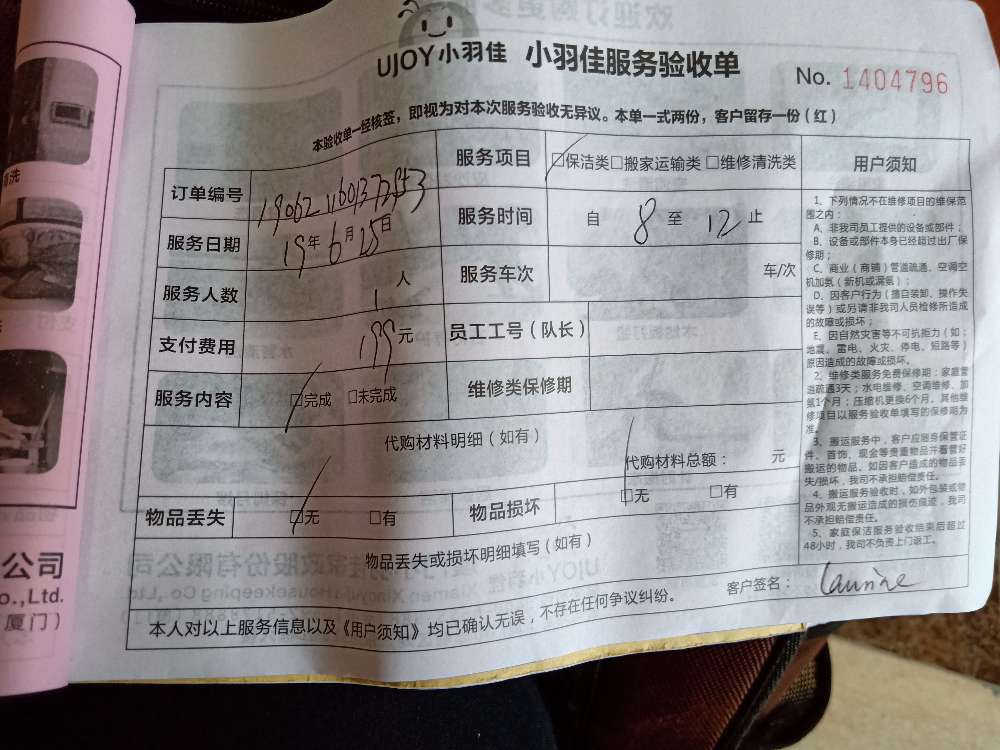 UJOY小羽佳 小羽佳服务验收单
No. 1404796
本验收单一经核签，即视为对本次服务验收无异议。本单一式两份，客户留存一份（红）
订单编号
服务项目 □保洁类□搬家运输类 □维修清洗类
用户须知
服务日期 19年6月25日
服务时间 自 8 至 12 止
服务人数 1 人
服务车次 车/次
支付费用 199元
员工工号（队长）
服务内容 □完成 □未完成
维修类保修期
代购材料明细（如有）
代购材料总额： 元
物品丢失 □无 □有
物品损坏 □无 □有
物品丢失或损坏明细填写（如有）
客户签名：
本人对以上服务信息以及《用户须知》均已确认无误，不存在任何争议纠纷。
1、下列情况不在维修项目的维保范
围之内：
A、非我司员工提供的设备或部件；
B、设备或部件本身已经超过出厂保
修期；
C、商业（商铺）管道疏通、空调空
机加氨（新机或漏氨）；
D、因客户行为（擅自装卸、操作失
误等）或另请非我司人员检修所造成
的故障或损坏；
E、因自然灾害等不可抗拒力（如：
地震、雷电、火灾、停电、短路等）
原因造成的故障或损坏。
2、维修类服务免费保修期：家庭管
道疏通3天；水电维修、空调维修、加
氨1个月；压缩机更换6个月。其他维
修项目以服务验收单填写的保修期为
准。
3、搬运服务中，客户应随身保管证
件、首饰、现金等贵重物品并看管好
搬运的物品。如因客户造成的物品丢
失/损坏，我司不承担赔偿责任。
4、搬运服务验收时，如外包装或物
品外观无搬运造成的损伤痕迹，我司
不承担赔偿责任。
5、家庭保洁服务验收结束后超过
48小时，我司不负责上门返工。
公司
o.,Ltd.
厦门）